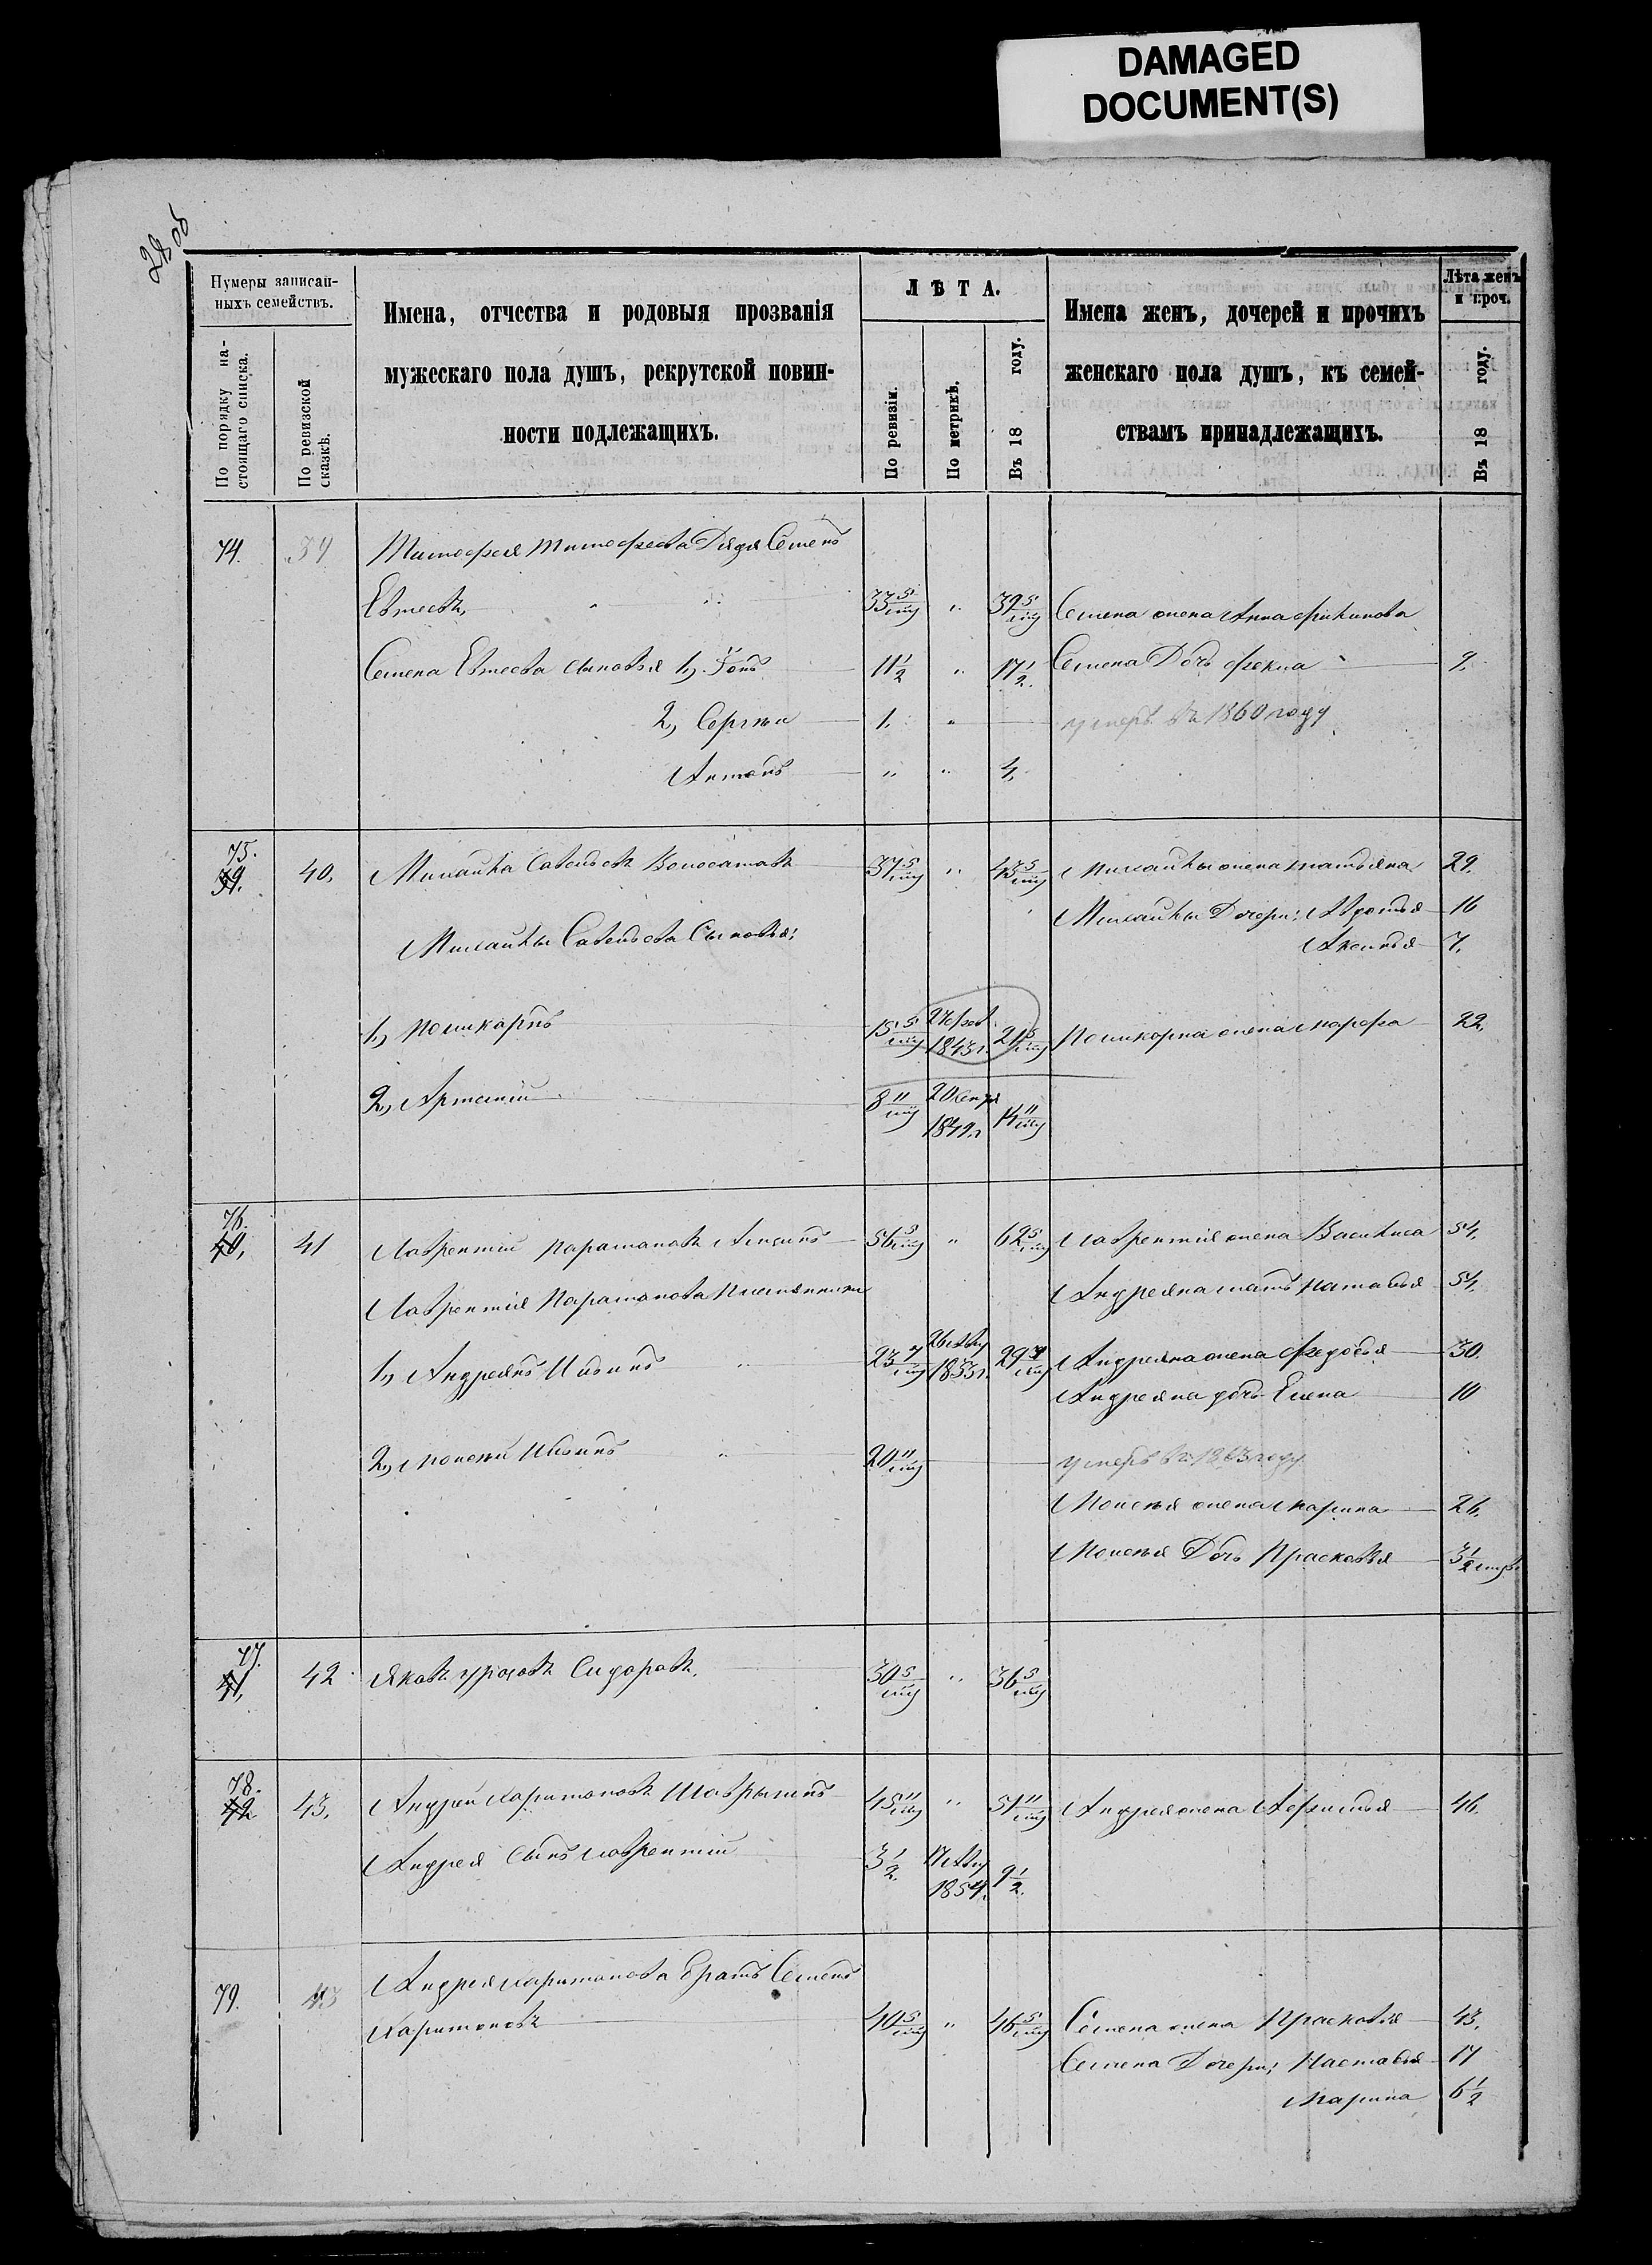 DAMAGED
DOCUMENT(S)
28 об
Нумеры записан-
ныхъ семействъ.
По порядку на-
стоящаго списка.
По ревизской
сказкѣ.
Имена, отчества и родовыя прозванія
мужескаго пола душъ, рекрутской повин-
ности подлежащихъ.
ЛѢТА.
По ревизіи.
По метрикѣ.
Въ 18 году.
Имена женъ, дочерей и прочихъ
женскаго пола душъ, къ семей-
ствамъ принадлежащихъ.
Лѣта женъ
и проч.
Въ 18 году.
74. 39 Тимофея Тимофеева Дядя Семенъ
Евтеевъ 33 5/мц " 39 5/мц Семена жена Анна
Семена Евтеева сыновья 1, 11 1/2 " 17 1/2 Семена Дочь Фекла 9.
2, Сергѣй 1. " умеръ въ 1860 году
Антонъ " " 4.
75. 39. 40. Михайла Савельевъ 37 5/мц " 43 5/мц Михайлы жена Татьяна 29.
Михайлы Дочери: Авдотья 16
Михайлы Савельева Сыновья: Аксинья 7.
1, Поликарпъ 15 5/мц 24 фев 1843 г. 21 5/мц Поликарпа жена Марфа 22.
2, Артемій 8 11/мц 20 1849 г 14 11/мц
76. 40. 41 Лаврентій Харитоновъ 56 5/мц " 62 5/мц Лаврентія жена Василиса 54.
Лаврентія Харитонова племянники Андреяна мать Наталья 54.
1, Андреянъ Ильинъ 23 7/мц 26 Авгу 1833 г. 29 7/мц Андреяна жена Федосья 30.
Андреяна дочь Елена 10
2, Моисей Ильинъ 20 11/мц умеръ въ 1863 году
Моисея жена Марина 26.
Моисея Дочь Прасковья 3 1/2
77. 41. 42 Яковъ Сидоровъ. 30 5/мц " 36 5/мц
78. 42 43. Андрей Харитоновъ 45 11/мц " 51 11/мц Андрея жена Афимья 46.
Андрея Сынъ Лаврентій 3 1/2. 17 Авгу 1854. 9 1/2.
79. 43 Андрея Харитонова братъ Семенъ
Харитоновъ 40 5/мц " 46 5/мц Семена жена Прасковья 43.
Семена Дочери: Настасья 17
Марина 6 1/2